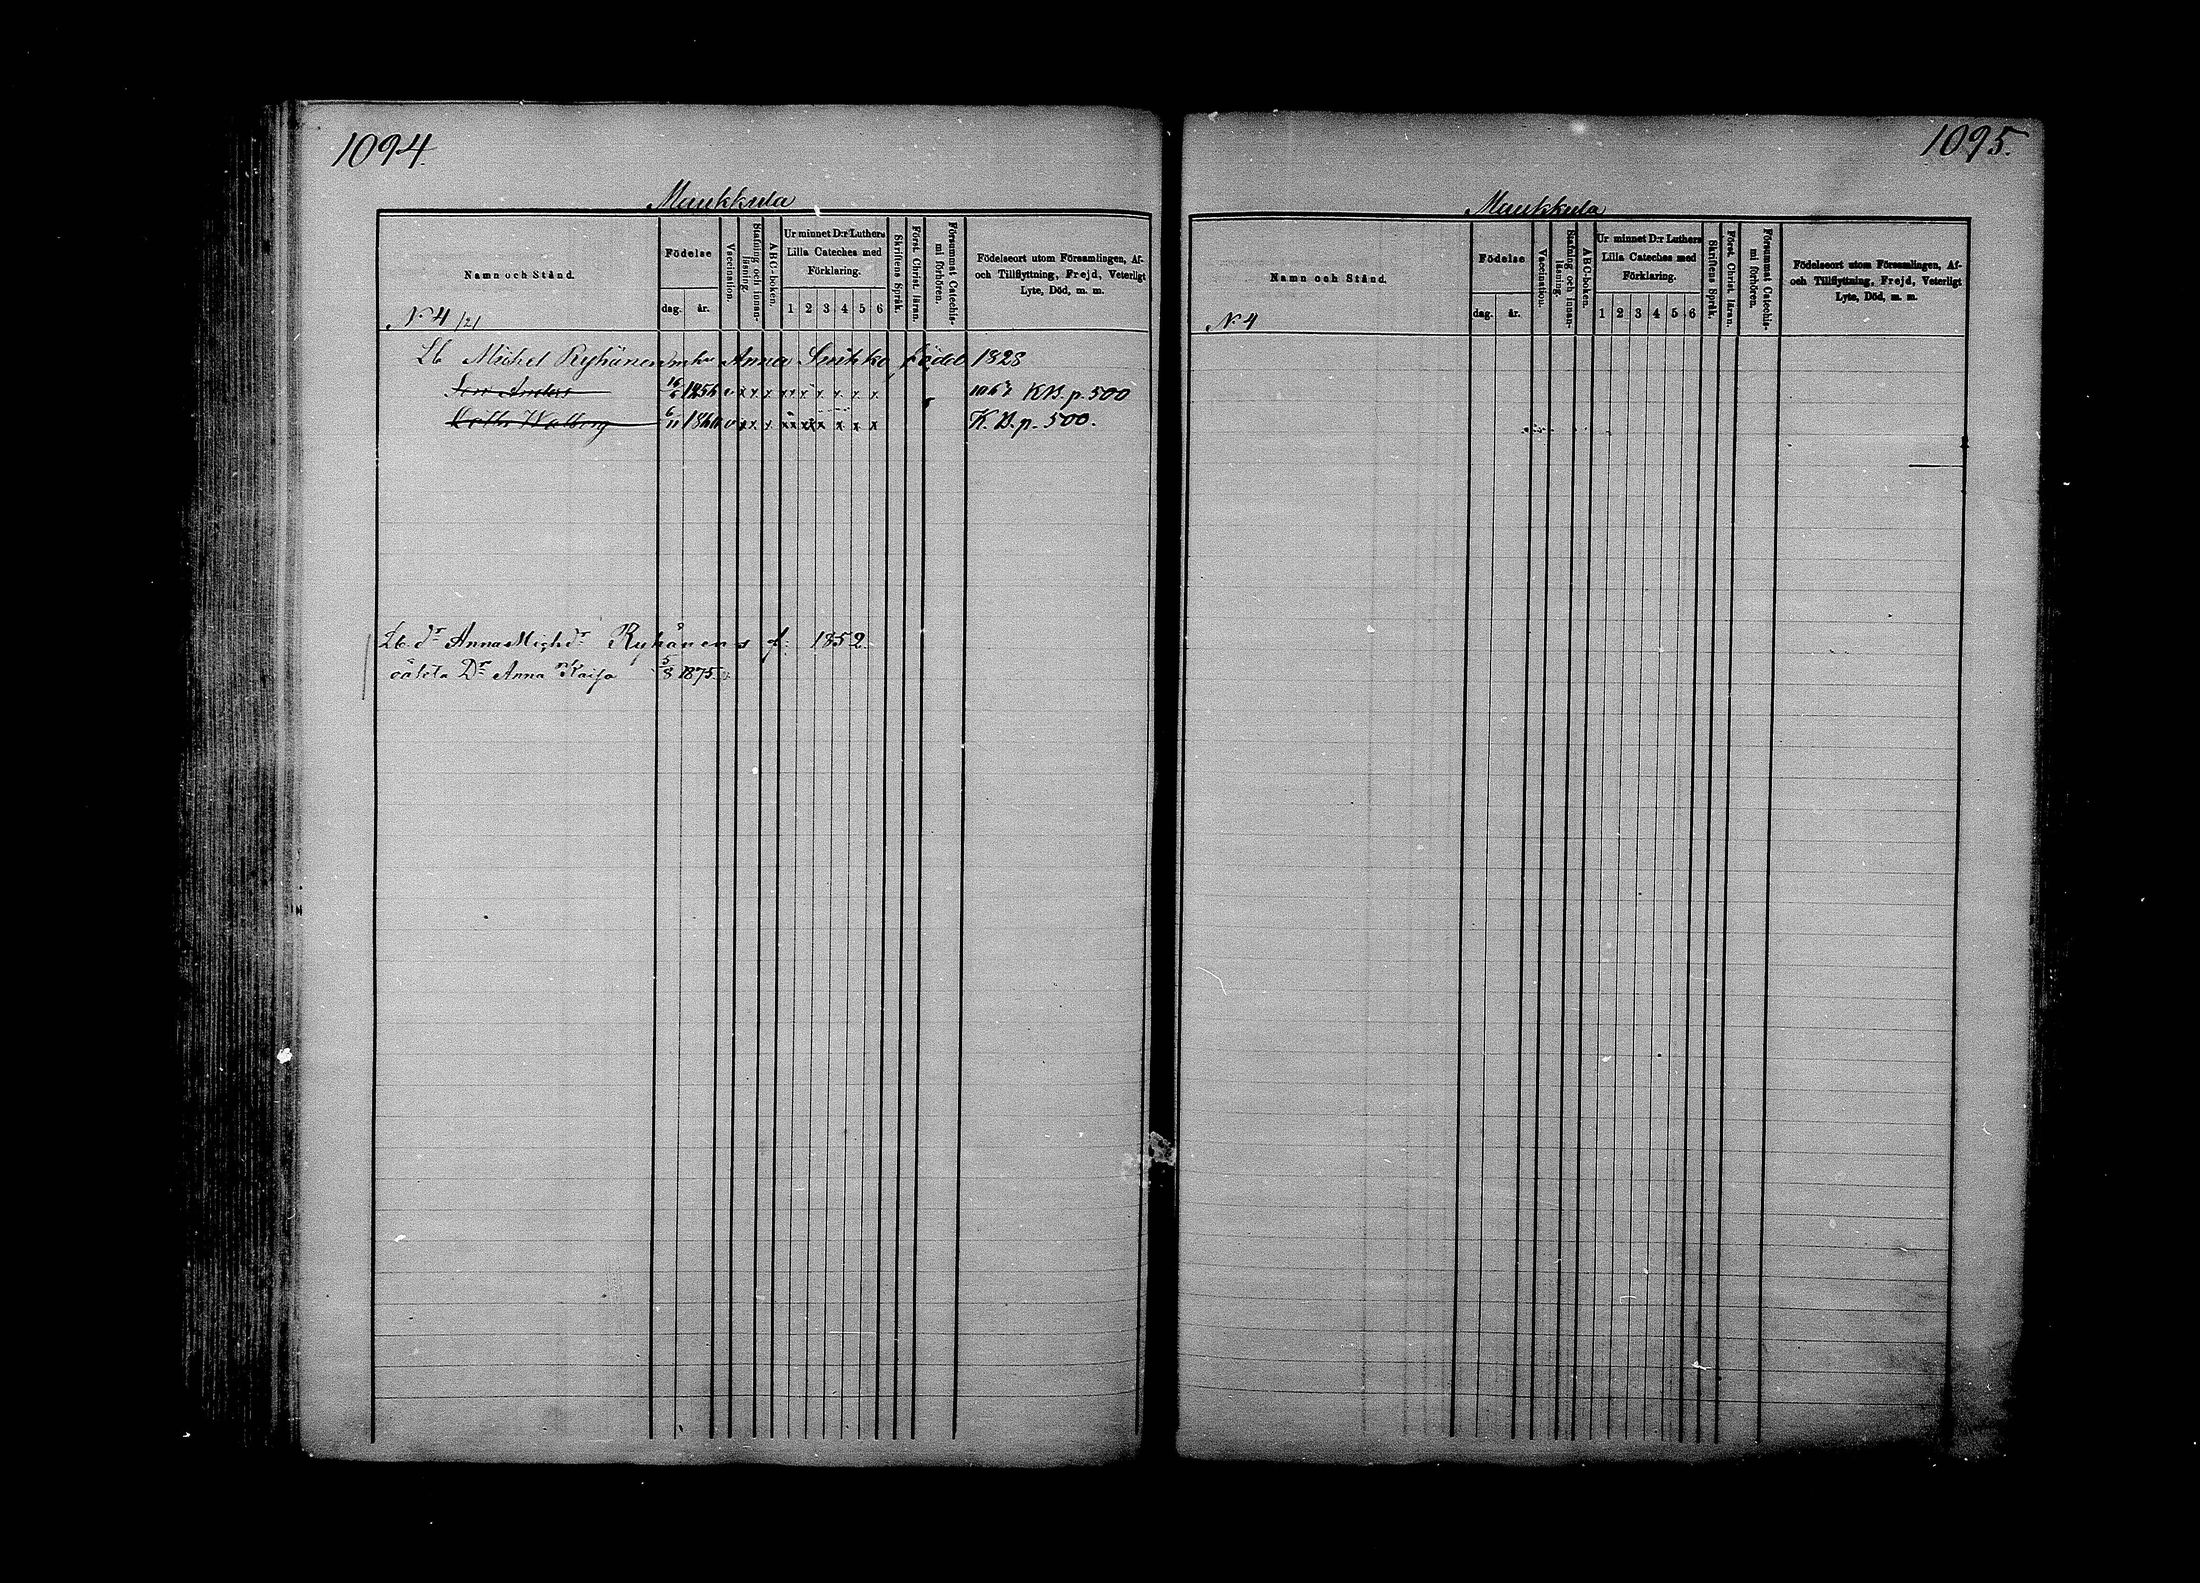 1094.
Maukkula
Namn och Stånd.
Födelse
dag.
år.
Vaccination.
Stafning och innan-
läsning.
ABC-boken.
Ur minnet D:r Luthers
Lilla Cateches med
Förklaring.
1 2 3 4 5 6
Skriftens Språk.
Först. Christ. läran.
Försummat Catechis-
mi förhören.
Födelseort utom Församlingen, Af-
och Tillflyttning, Frejd, Veterligt
Lyte, Död, m. m.
N:o 4 /2/
Lb Michel Ryhänen Anna född 1828
Son Anders 16/6 1856 v x x x x x x x x x KB. p. 500
Walborg 6/11 v x x x x x x x x K. B. p. 500.
Lb. dr Anna Mich. dr Ryhänen f. 1852
oäkta Dr Anna Kaisa 5/8 1875
1095.
Maukkula
Namn och Stånd.
Födelse
dag.
år.
Vaccination.
Stafning och innan-
läsning.
ABC-boken.
Ur minnet D:r Luthers
Lilla Cateches med
Förklaring.
1 2 3 4 5 6
Skriftens Språk.
Först. Christ. läran.
Försummat Catechis-
mi förhören.
Födelseort utom Församlingen, Af-
och Tillflyttning, Frejd, Veterligt
Lyte, Död, m. m.
N:o 4